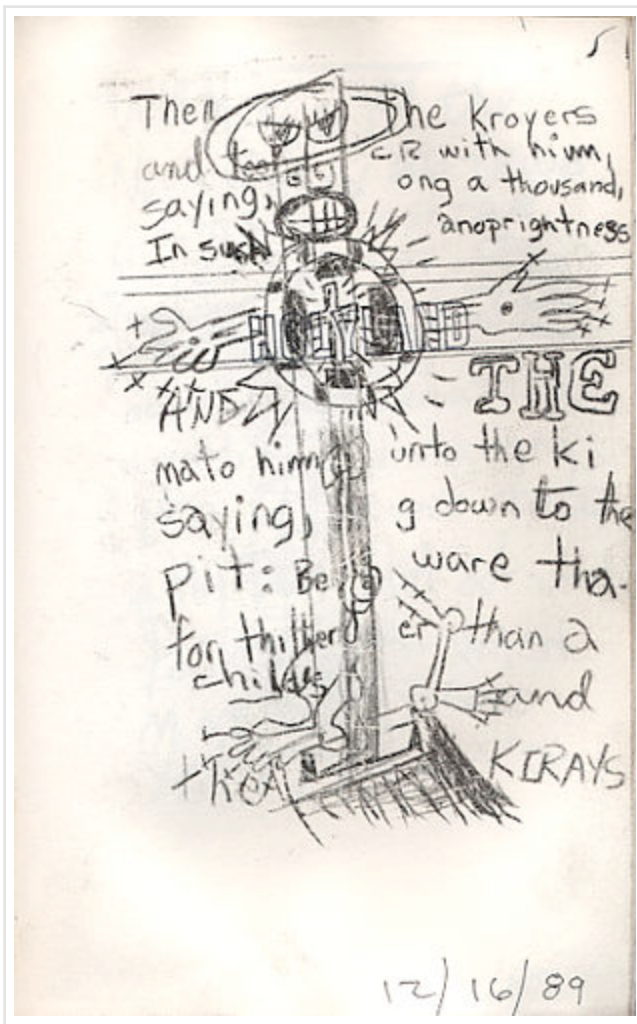 Then the Kroyers
and too er with him,
saying, ong a thousand,
In such anoprightness
AND THE
mato him unto the ki
saying, g down to the
pit: Be ware tha-
for thither er than a
childs and
thea KIRAYS
12/16/89